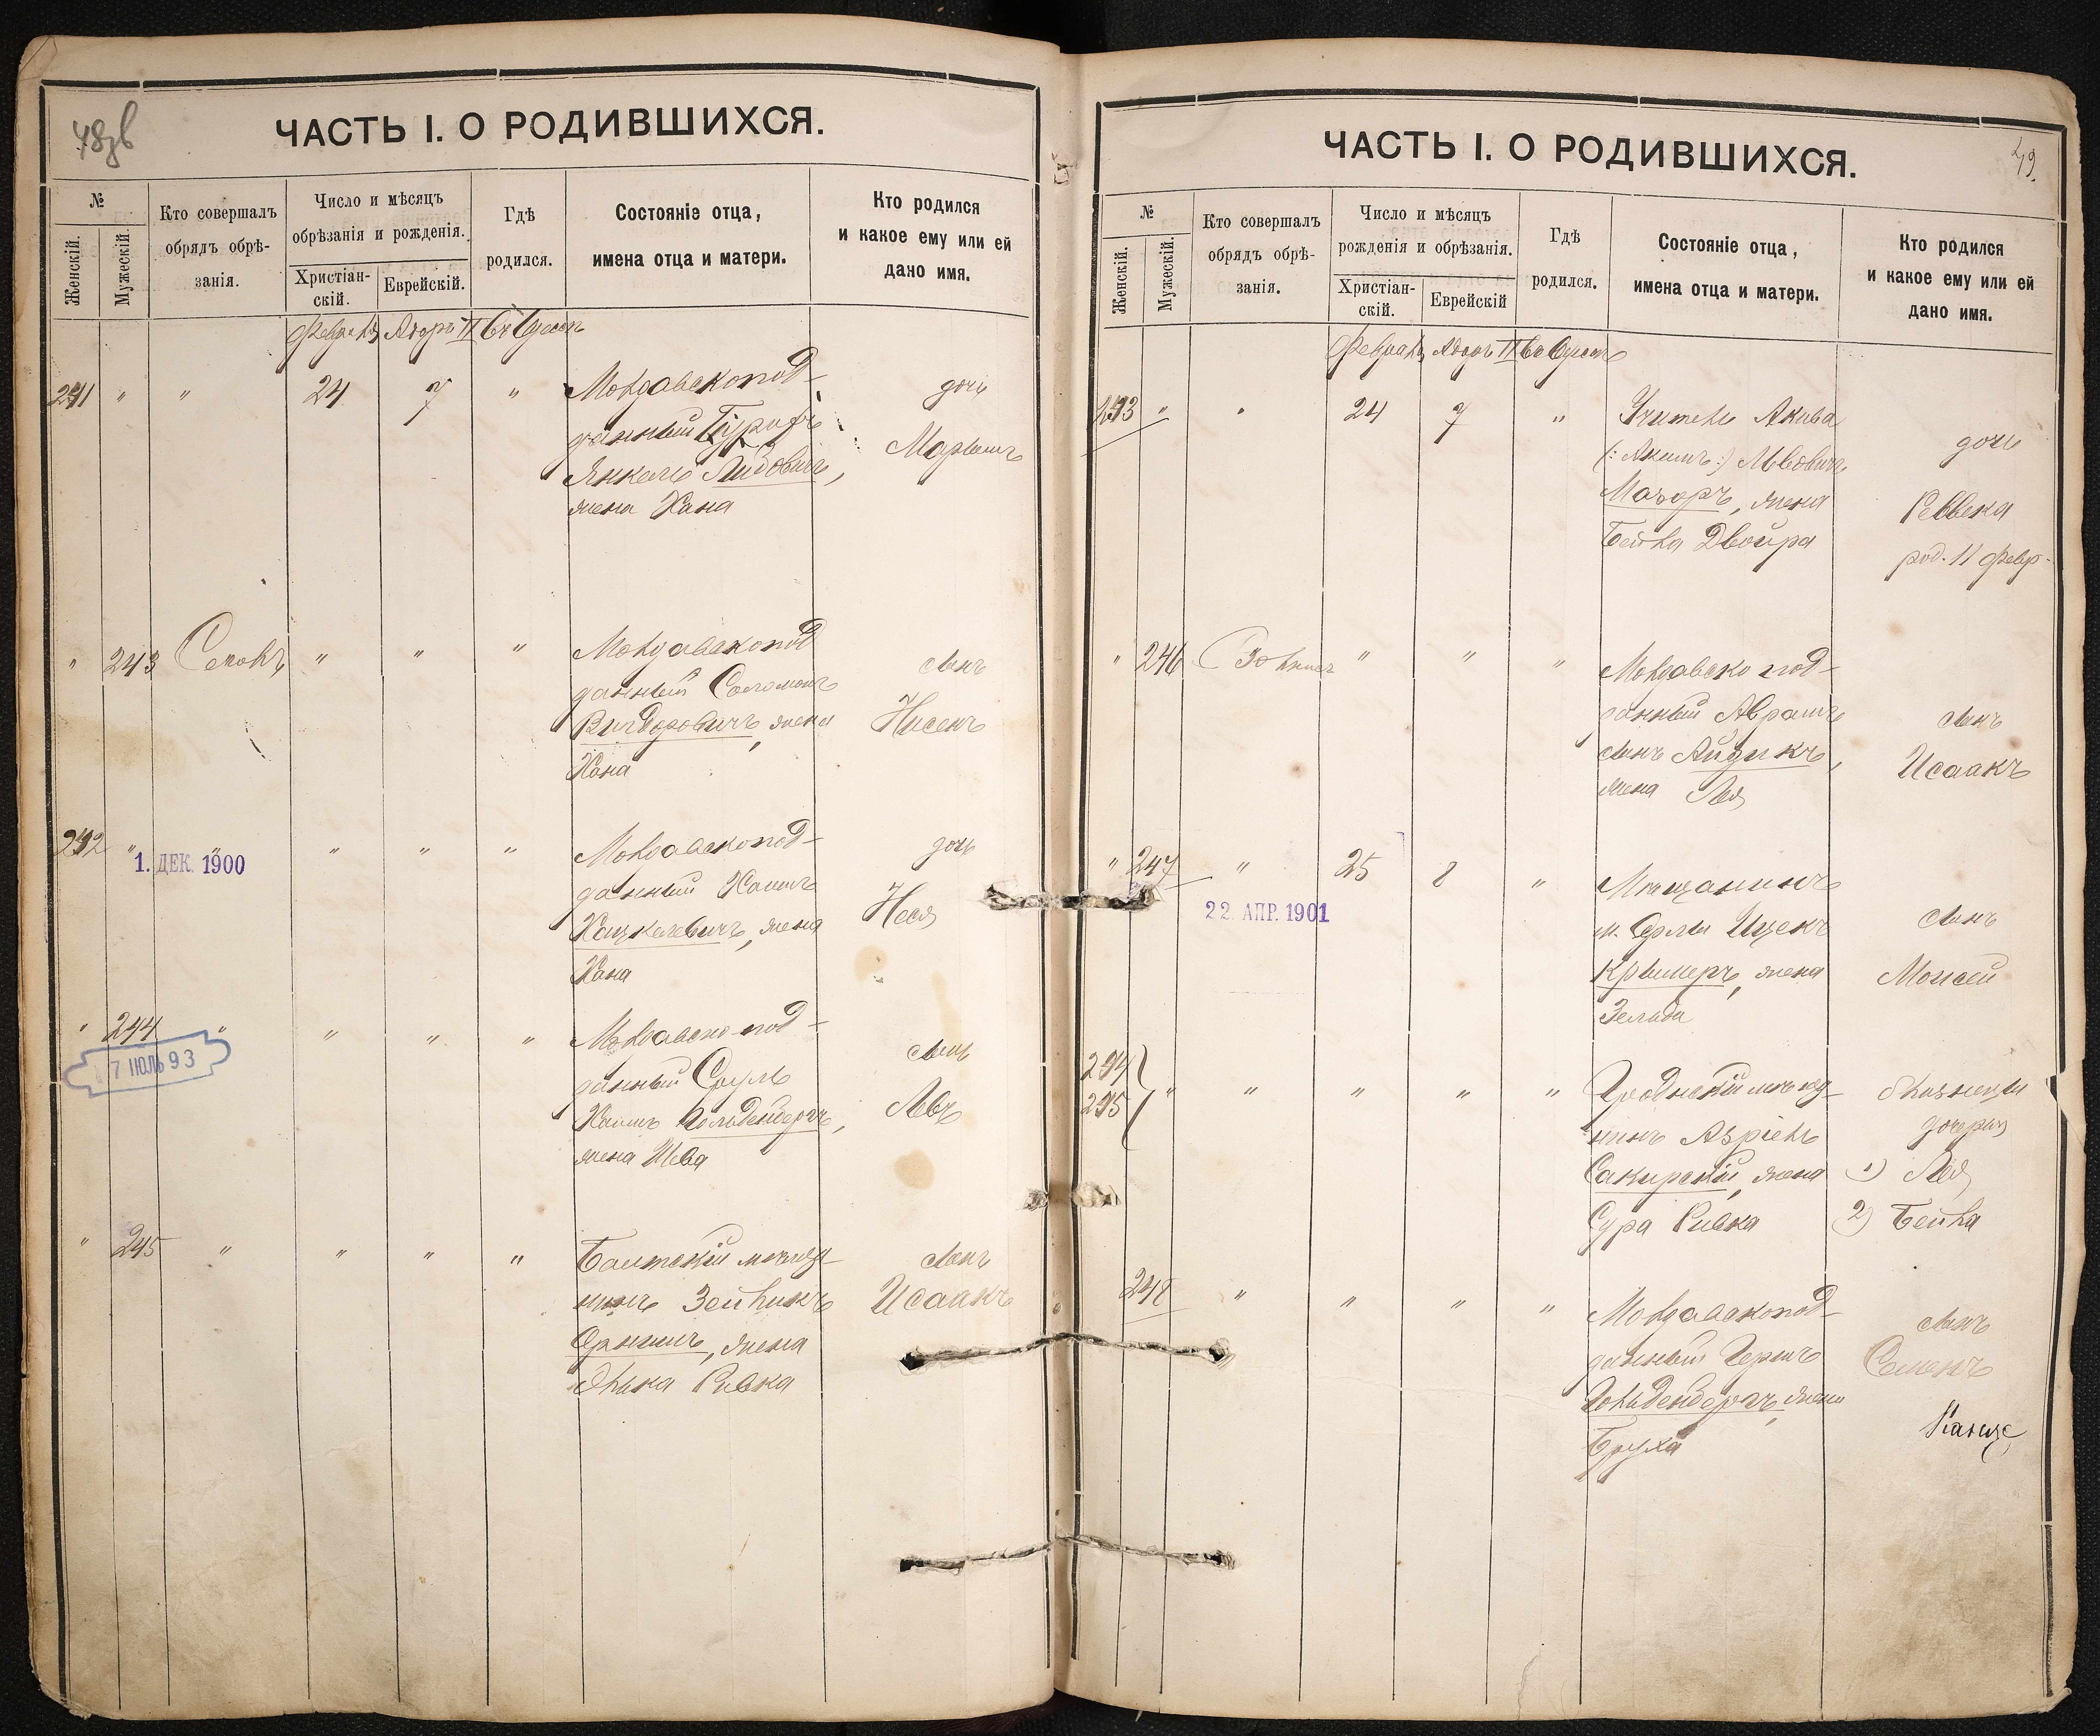 48зв
ЧАСТЬ I. О РОДИВШИХСЯ.
№
Женскій.
Мужескій.
Кто совершалъ
обрядъ обрѣ-
занія.
Число и мѣсяцъ
обрѣзанія и рожденія.
Христіан-
скій.
Еврейскій.
Гдѣ
родился.
Состояніе отца,
имена отца и матери.
Кто родился
и какое ему или ей
дано имя.
Февраль Адаръ II въ Одессѣ
241 " " 24 7 " Молдавскопод-
данный
Янкель Лидовичъ,
жена Хана
дочь
Маріемъ
" 243 " " " Молдавскопод
данный Соломонъ
жена
Хана
сынъ
Нисенъ
242 " " " " " Молдавскопод-
данный Хаимъ
Хацкелевичъ, жена
Хана
дочь
Неся
1. ДЕК. 1900
" 244 " " " " Молдавско-под-
данный Сруль
Хаимъ Гольденбергъ,
жена Шева
сынъ
Левъ
7 ІЮЛЬ 93
" 245 " " " " Балтскій мѣща-
нинъ Зейликъ
жена
Элька Ривка
сынъ
Исаакъ
49.
ЧАСТЬ I. О РОДИВШИХСЯ.
№
Женскій.
Мужескій.
Кто совершалъ
обрядъ обрѣ-
занія.
Число и мѣсяцъ
рожденія и обрѣзанія.
Христіан-
скій.
Еврейскій
Гдѣ
родился.
Состояніе отца,
имена отца и матери.
Кто родился
и какое ему или ей
дано имя.
Февраль Адаръ II въ Одессѣ
293 " " 24 7 " Учитель Акива
(: Акимъ :) Львовичъ
Мазоръ, жена
Бейла Двойра
дочь
Ревека
род. 11 февр.
" 246 " " " Молдавско под-
данный Абрамъ
сынъ Айзикъ,
жена Лея
сынъ
Исаакъ
" 247 " 25 8 " Мѣщанинъ
Ицекъ
Крымеръ, жена
Зельда
сынъ
Моисей
22 АПР. 1901
294
295 " " " " " Гродненскій мѣща-
нинъ Азріель
Сакирскій, жена
Сура Ривка
близнецы
дочери
1) Лея
2) Бейла
248 " " " " Молдавскопод-
данный Гершъ
Гольденбергъ, жена
Бруха
сынъ
Семенъ